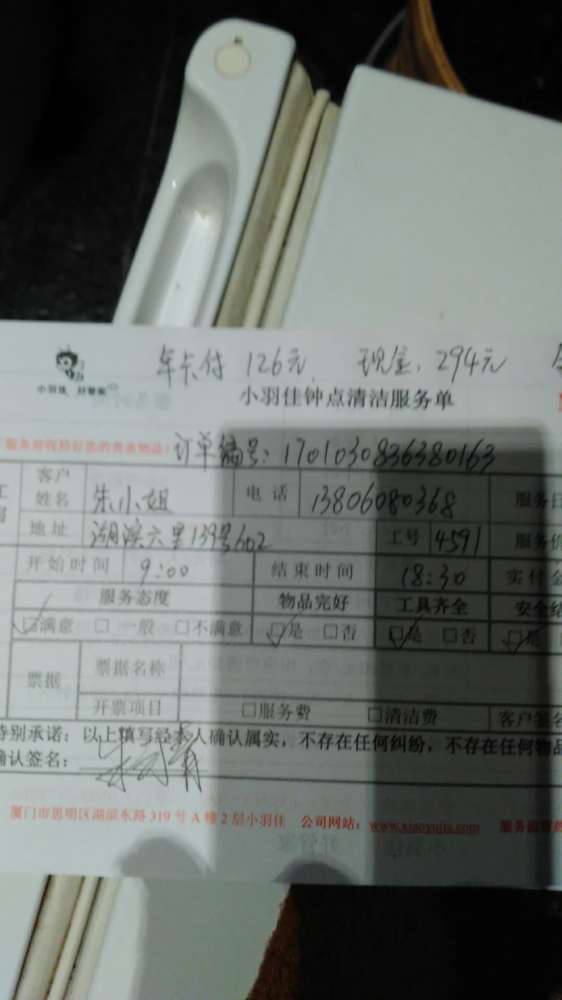 年卡付 126元, 现金, 294元
小羽佳 好管家
小羽佳钟点清洁服务单
订单编号: 1701030836380163
客户姓名 朱小姐 电话 13806080368 服务日
地址 湖滨六里139号602 工号 4591 服务价
开始时间 9:00 结束时间 18:30 实付金
服务态度 物品完好 工具齐全 安全结
☑满意 □一般 □不满意 ☑是 □否 ☑是 □否 ☑是
票据 票据名称
开票项目 □服务费 □清洁费 客户签名
特别承诺: 以上填写经本人确认属实, 不存在任何纠纷, 不存在任何物品
确认签名:
厦门市思明区湖滨东路 319 号 A 楼 2 层小羽佳 公司网站: www.xiaoyujia.com 服务监督